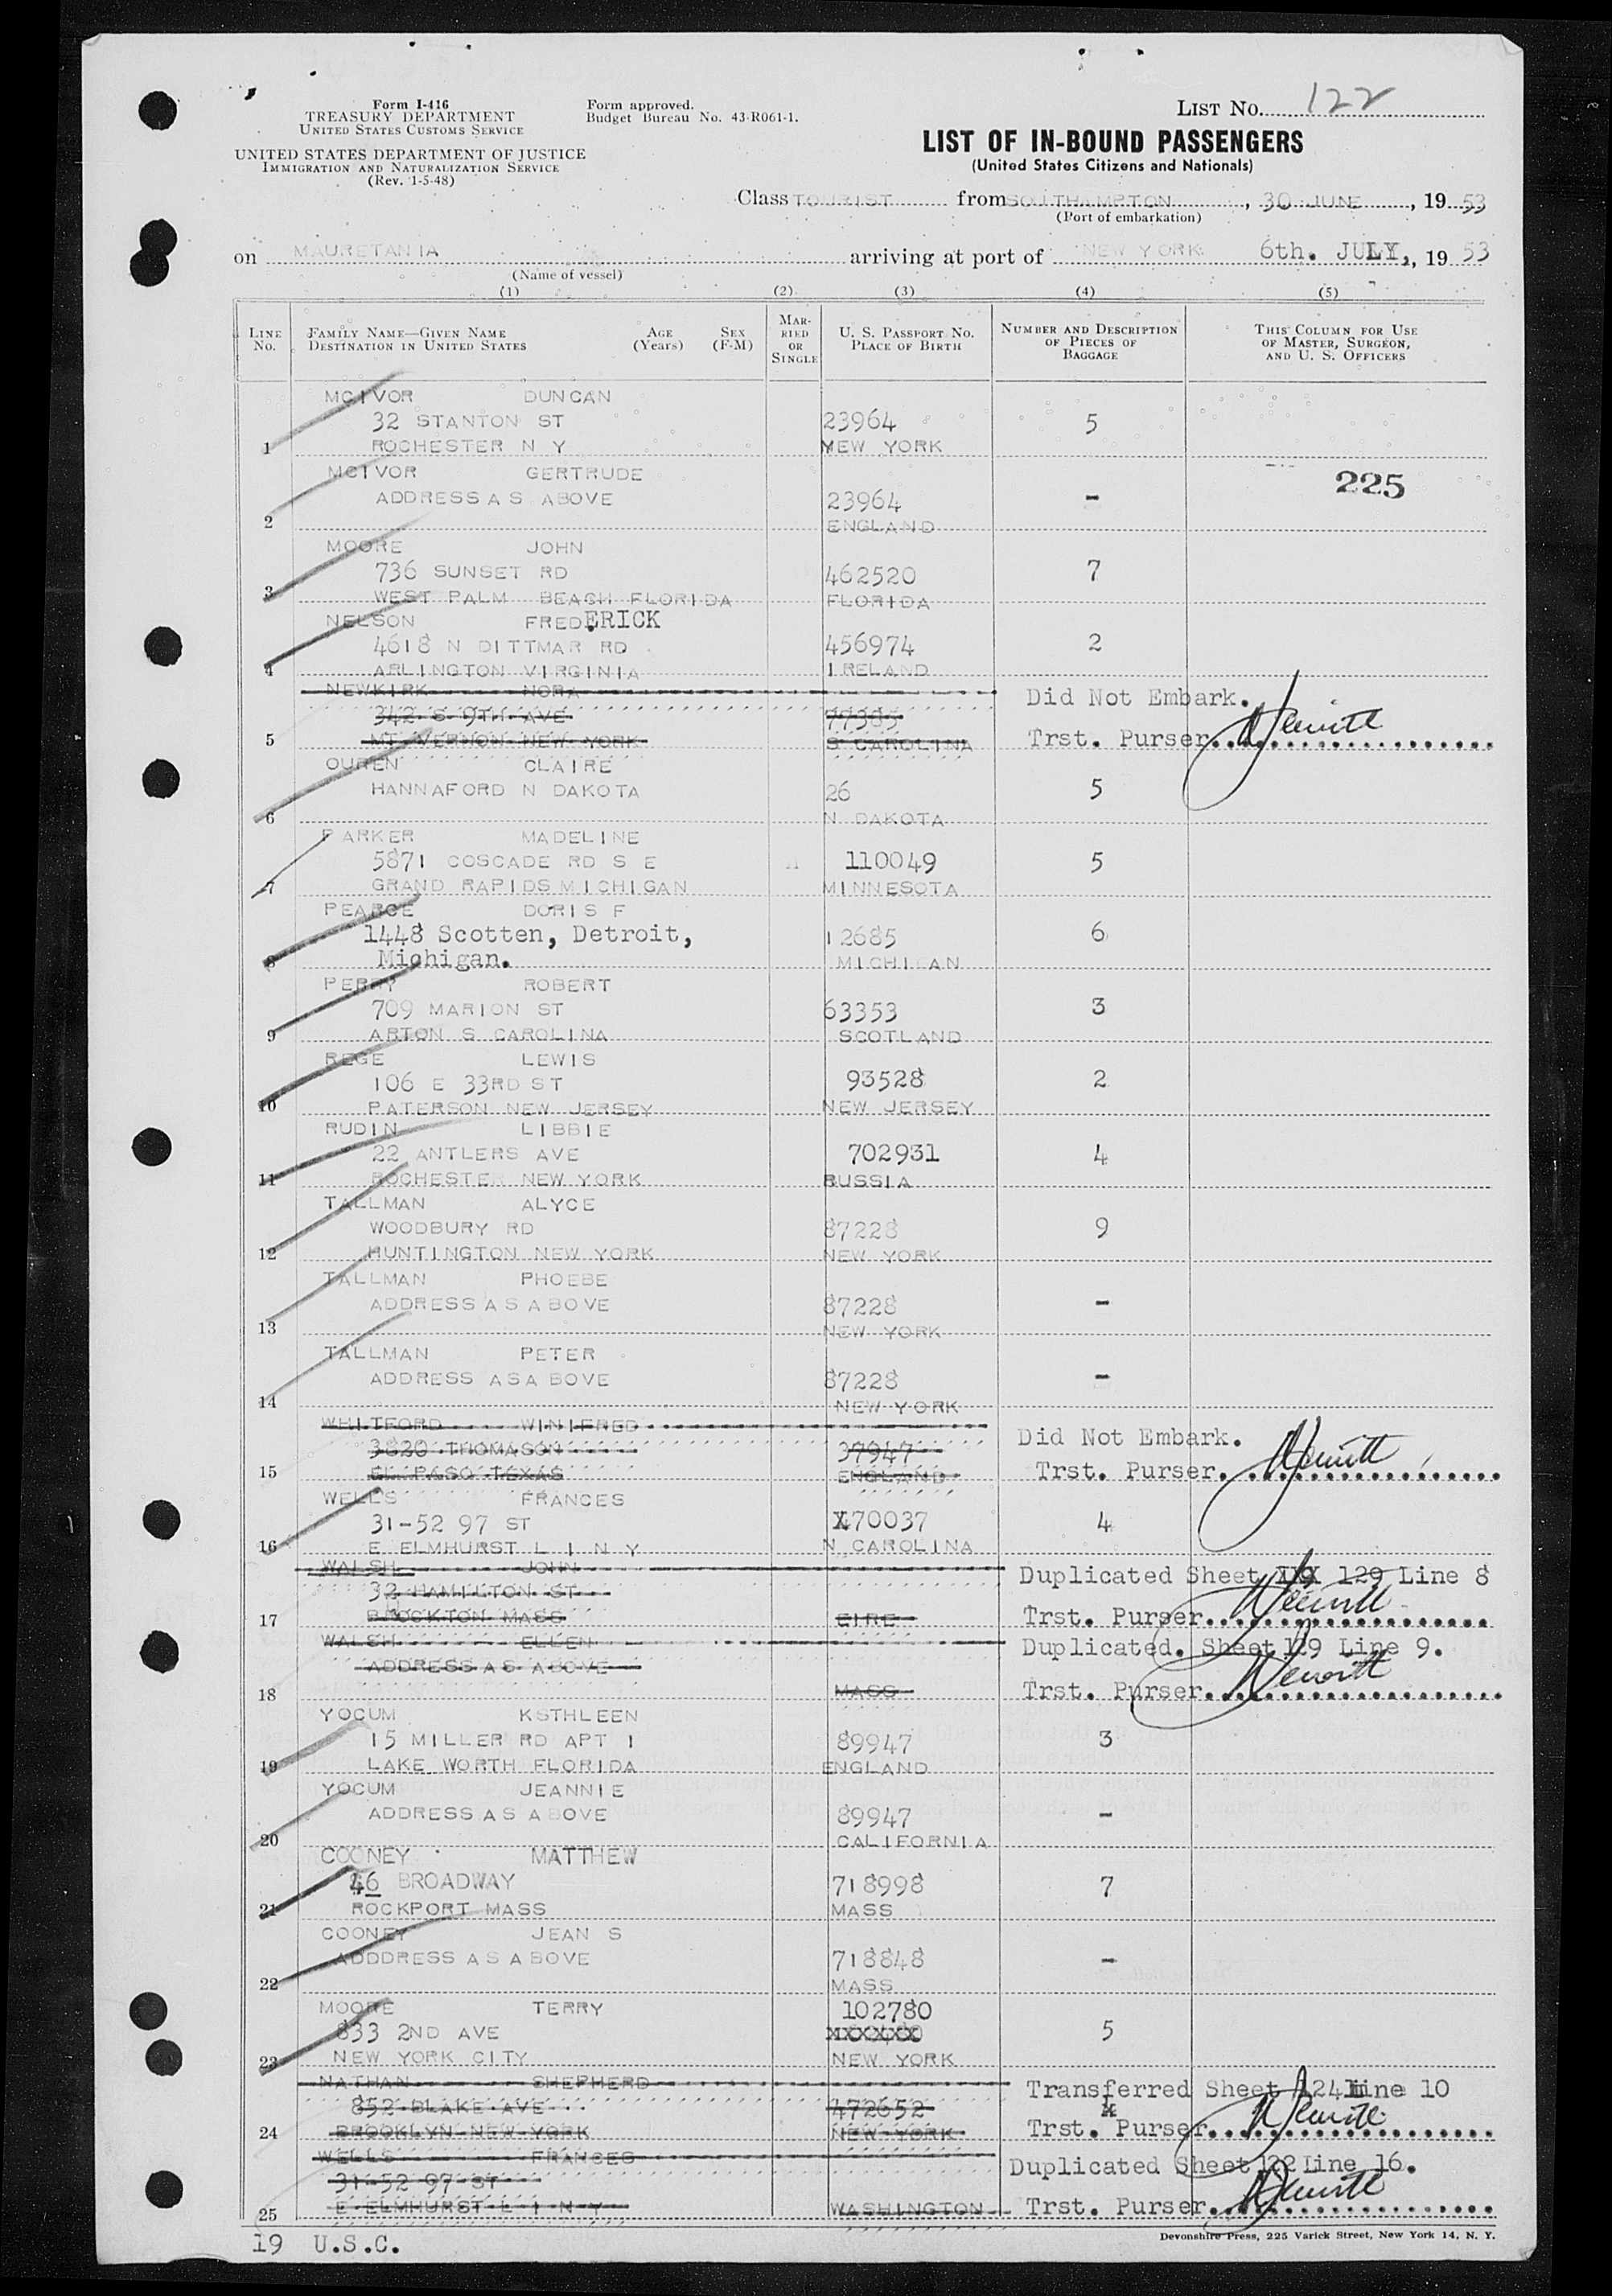 Form I-416
TREASURY DEPARTMENT
UNITED STATES CUSTOMS SERVICE
UNITED STATES DEPARTMENT OF JUSTICE
IMMIGRATION AND NATURALIZATION SERVICE
(Rev. 1-5-48)
Form approved.
Budget Bureau No. 43-R061-1.
LIST NO. 122
LIST OF IN-BOUND PASSENGERS
(United States Citizens and Nationals)
Class TOURIST from SOUTHAMPTON, 30 JUNE, 19 53
(Port of embarkation)
on MAURETANIA arriving at port of NEW YORK 6th. JULY, 19 53
(Name of vessel)
(1) (2) (3) (4) (5)
LINE NO. FAMILY NAME—GIVEN NAME DESTINATION IN UNITED STATES AGE (Years) SEX (F-M) MARRIED OR SINGLE U. S. PASSPORT NO. PLACE OF BIRTH NUMBER AND DESCRIPTION OF PIECES OF BAGGAGE THIS COLUMN FOR USE OF MASTER, SURGEON, AND U. S. OFFICERS
MCIVOR DUNCAN
32 STANTON ST 23964 5
1 ROCHESTER N Y NEW YORK
MCIVOR GERTRUDE 225
ADDRESS A S ABOVE 23964 -
2 ENGLAND
MOORE JOHN
736 SUNSET RD 462520 7
3 WEST PALM BEACH FLORIDA FLORIDA
NELSON FREDERICK
4618 N DITTMAR RD 456974 2
4 ARLINGTON VIRGINIA IRELAND
NEWKIRK NORA Did Not Embark.
342 S 9TH AVE 77385
5 MT VERNON NEW YORK S CAROLINA Trst. Purser
OUREN CLAIRE
HANNAFORD N DAKOTA 26 5
6 N DAKOTA
PARKER MADELINE
5871 COSCADE RD S E 110049 5
7 GRAND RAPIDS MICHIGAN MINNESOTA
PEARCE DORIS F
1448 Scotten, Detroit, 12685 6
8 Michigan. MICHI AN
PERRY ROBERT
709 MARION ST 63353 3
9 ARTON S CAROLINA SCOTLAND
REGE LEWIS
106 E 33RD ST 93528 2
10 PATERSON NEW JERSEY NEW JERSEY
RUDIN LIBBIE
22 ANTLERS AVE 702931 4
11 ROCHESTER NEW YORK RUSSIA
TALLMAN ALYCE
WOODBURY RD 87228 9
12 HUNTINGTON NEW YORK NEW YORK
TALLMAN PHOEBE
ADDRESS A S A BOVE 87228 -
13 NEW YORK
TALLMAN PETER
ADDRESS ASA BOVE 87228 -
14 NEW YORK
WHITFORD WINIFRED Did Not Embark.
3820 THOMASON 37947
15 EL PASO TEXAS ENGLAND Trst. Purser.
WELLS FRANCES
31-52 97 ST 470037 4
16 E ELMHURST L I N Y N CAROLINA
WALSH JOHN Duplicated Sheet 129 Line 8
32 HAMILTON ST
17 BROCKTON MASS EIRE Trst. Purser
WALSH ELLEN Duplicated. Sheet 129 Line 9.
ADDRESS A S ABOVE
18 MASS Trst. Purser
YOCUM KSTHLEEN
15 MILLER RD APT 1 89947 3
19 LAKE WORTH FLORIDA ENGLAND
YOCUM JEANNIE
ADDRESS A S A BOVE 89947 -
20 CALIFORNIA
COONEY MATTHEW
46 BROADWAY 718998 7
21 ROCKPORT MASS MASS
COONEY JEAN S
ADDDRESS A S A BOVE 718848 -
22 MASS
MOORE TERRY 102780
833 2ND AVE XXXXXX 5
23 NEW YORK CITY NEW YORK
NATHAN SHEPHERD Transferred Sheet 124 Line 10
852 BLAKE AVE 472652
24 BROOKLYN NEW YORK NEW YORK Trst. Purser
WELLS FRANCES Duplicated Sheet 122 Line 16.
31-52 97 ST
25 E ELMHURST L I N Y WASHINGTON Trst. Purser
19 U.S.C.
Devonshire Press, 225 Varick Street, New York 14, N. Y.